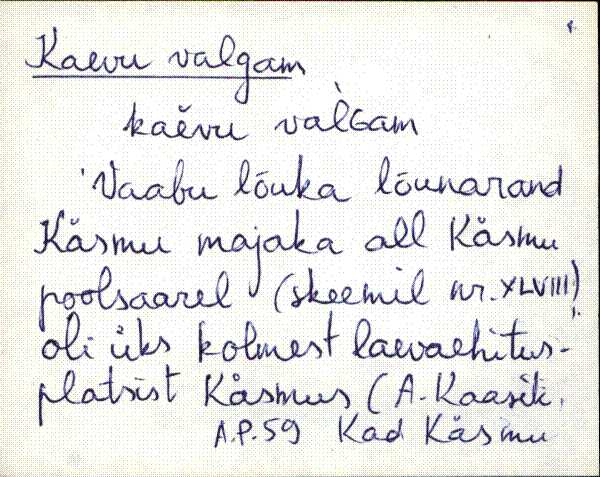 Kaevu valgam
kaěvu val̀Gam
'Vaabu lõuka lõunarand
Käsmu majaka all Käsmu
poolsaarel (skeemil nr. XLVIII)
oli üks kolmest laevaehitus-
platsist Käsmus (A. Kaasik.
A.P. 59 Kad Käsmu